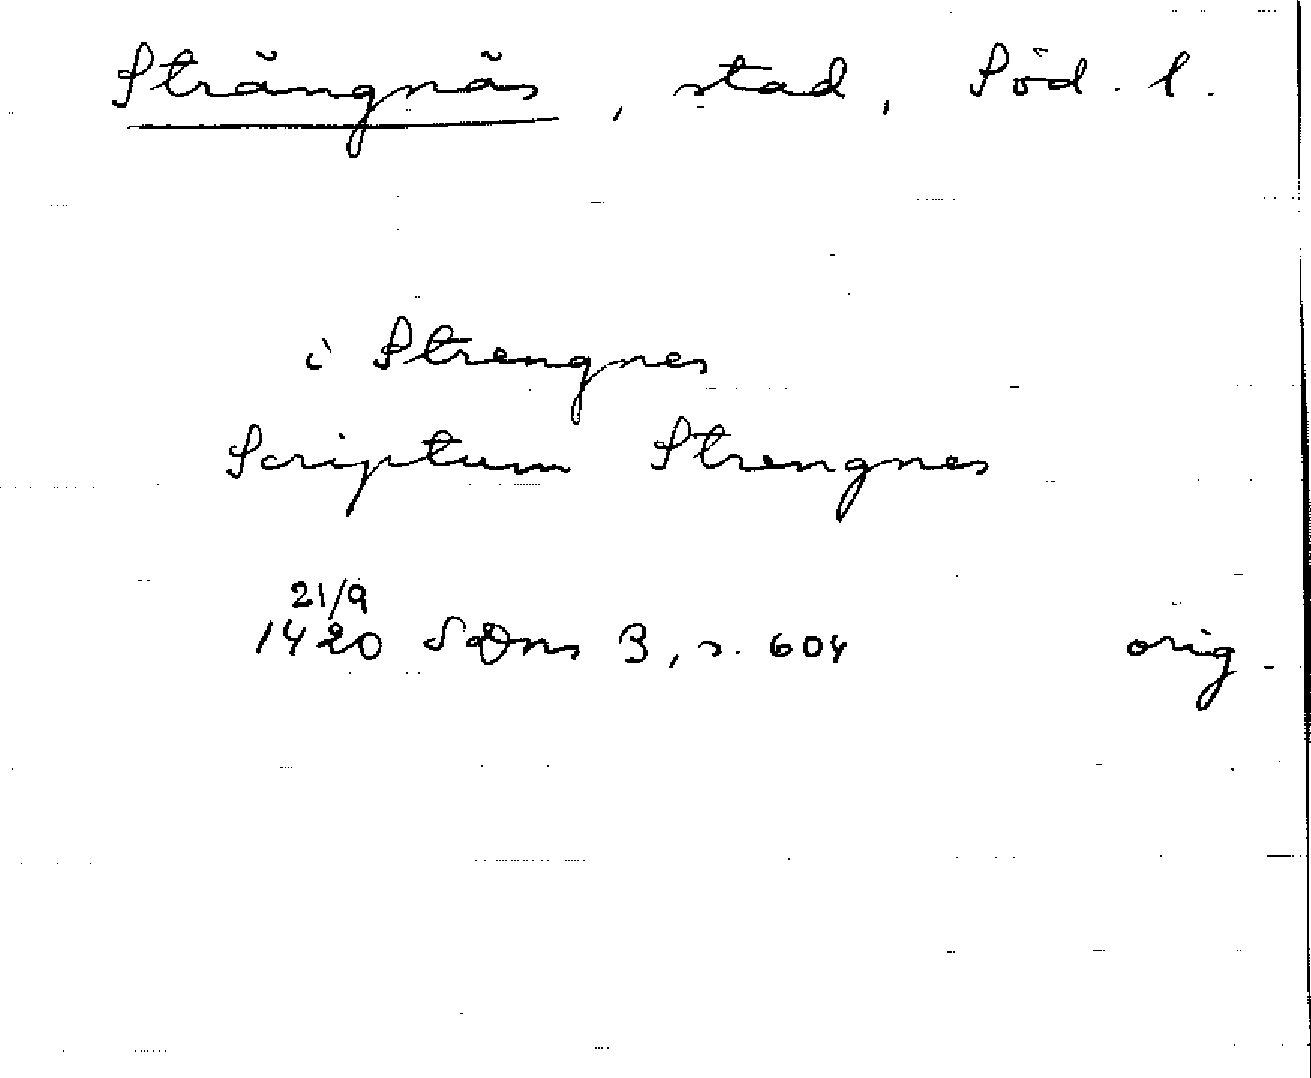 Strängnäs, stad, Söd. l.
i Strengnes
Scriptum Strengnes
21/9
1420 SDns 3, s. 604 orig